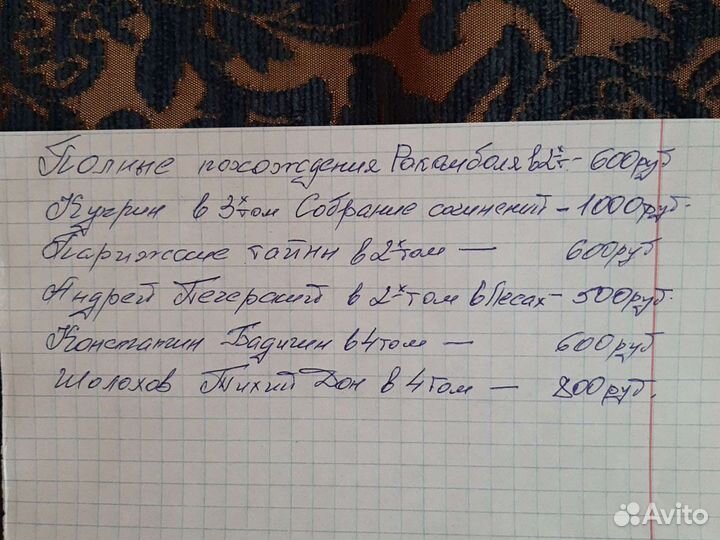 Полные похождения Рокамболя в 2х т - 600 руб
Куприн в 3х том Собрание сочинений - 1000 руб.
Парижские тайны в 2х том — 600 руб
Андрей Печерский в 2х том в Лесах - 500 руб.
Константин Бадигин в 4 том — 600 руб
Шолохов Тихий Дон в 4 том — 800 руб.
Avito